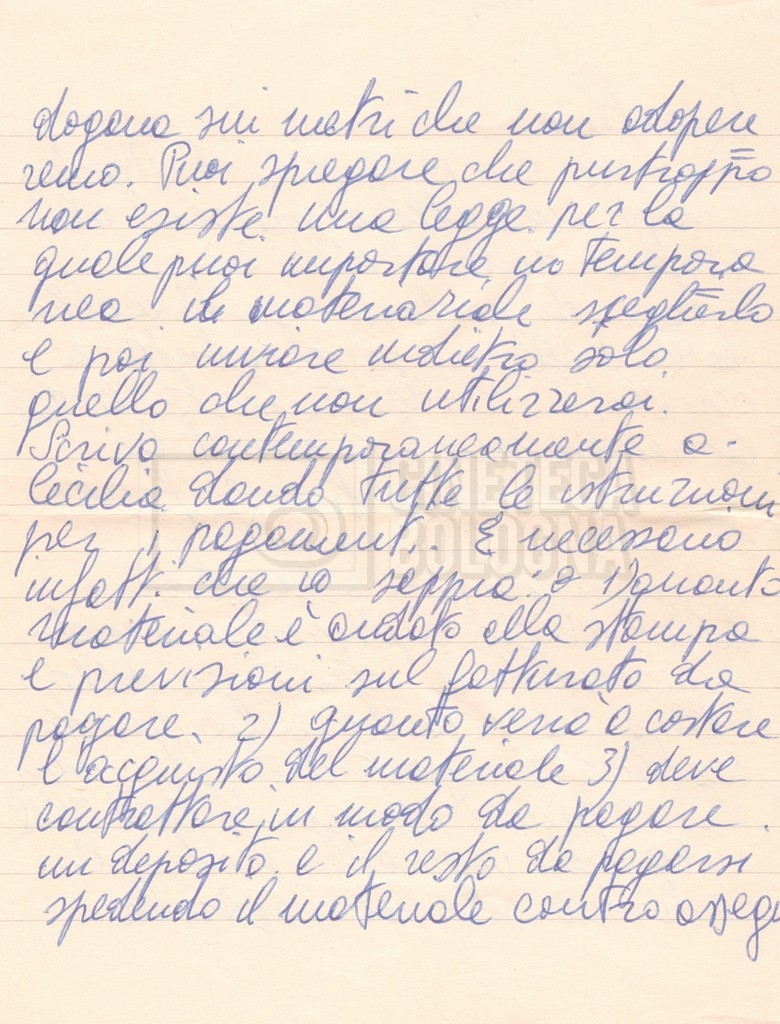 dogana sui metri che non adope=
remo. Puoi spiegare che purtroppo
non esiste una legge per la
quale puoi importare in tempora
nea il materiale sceglierlo
e poi inviare indietro solo
quello che non utilizzerai.
Scrivo contemporaneamente a
Cecilia dando tutte le istruzioni
per i pagamenti. È necessario
infatti che io sappia: 1) quanto
materiale è andato alla stampa
e previsioni sul fatturato da
pagare. 2) quanto verrà a costare
l'acquisto del materiale 3) deve
contrattare in modo da pagare
un deposito e il resto da pagarsi
spedendo il materiale contro assegn
CINETECA
BOLOGNA